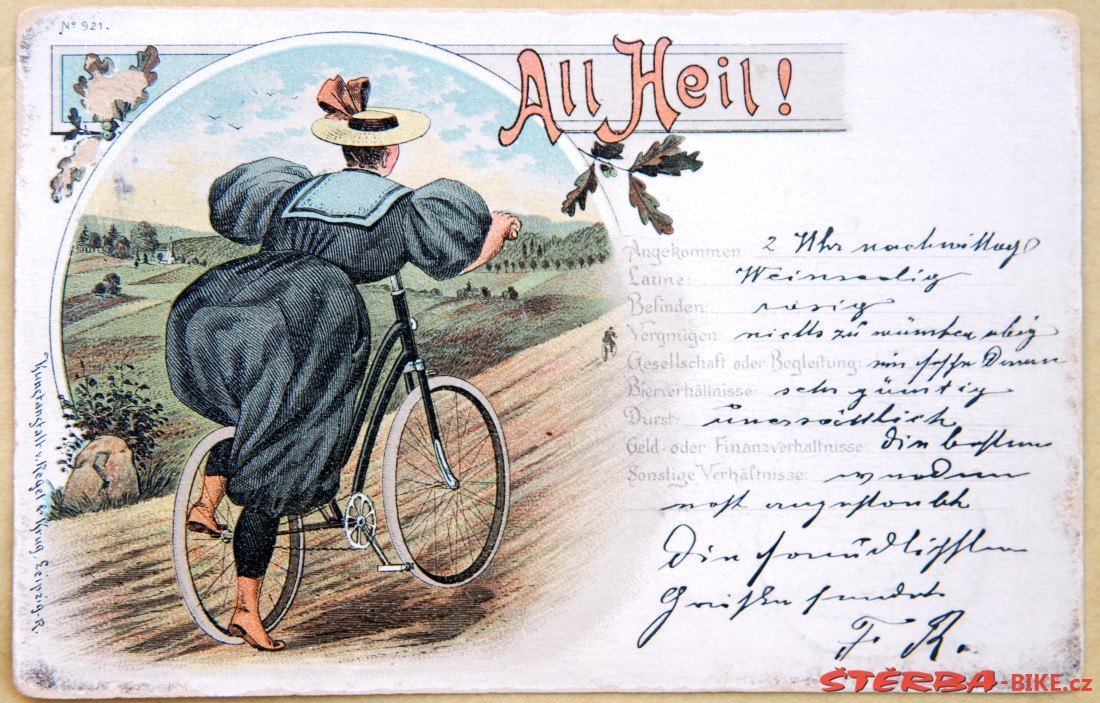 No 921.
All Heil!
Angekommen: 2 Uhr nachmittag
Laune: Weinseelig
Befinden: rosig
Vergnügen: nichts zu wünschen übrig
Gesellschaft oder Begleitung: Damen
Bierverhältnisse: sehr günstig
Durst: Unersättlich
Geld- oder Finanzverhältnisse: die besten
Sonstige Verhältnisse: werden
erst
Die freundlichsten
Grüße sendet
F. K.
Kunstanstalt v. Regel & Krug, Leipzig-R.
ŠTĚRBA-BIKE.cz